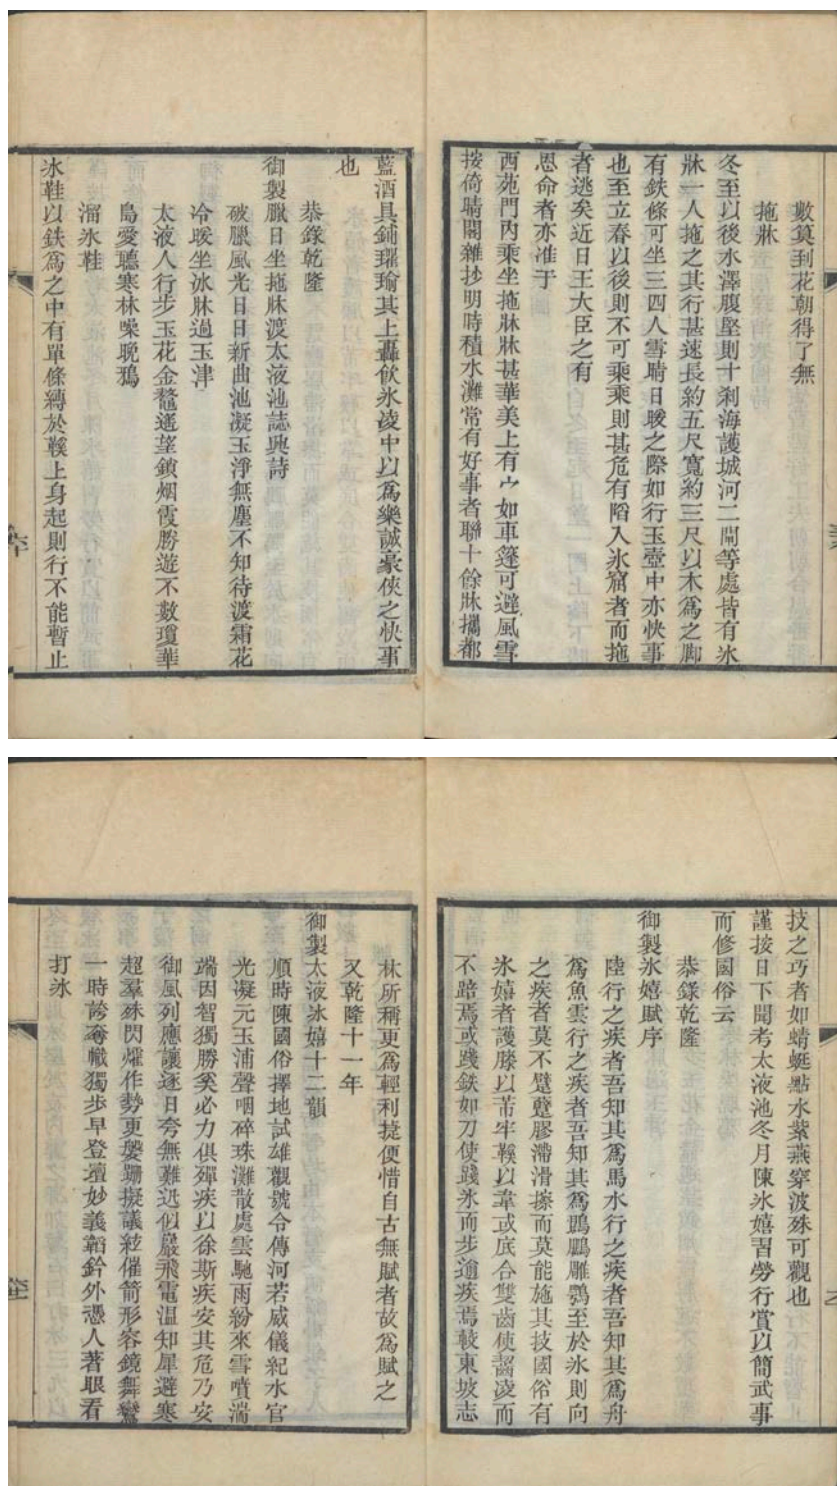 數莫到花朝得了無
拖牀
冬至以後水澤腹堅則十剎海護城河二閘等處皆有氷
牀一人拖之其行甚速長約五尺寬約三尺以木爲之脚
有鉄條可坐三四人雪晴日暖之際如行玉壺中亦快事
也至立春以後則不可乘乘則甚危有陷入氷窟者而拖
者逃矣近日王大臣之有
恩命者亦准于
西苑門內乘坐拖牀牀甚華美上有宀如車篷可避風雪
按倚晴閣雜抄明時積水灘常有好事者聯十餘牀攜都
藍酒具鋪㲮毹其上轟飲氷凌中以爲樂誠豪俠之快事
也
恭錄乾隆
御製臘日坐拖牀渡太液池誌興詩
破臘風光日日新曲池凝玉淨無塵不知待渡霜花
冷暖坐氷牀過玉津
太液人行步玉花金鼇遙望鎖烟霞勝遊不數瓊華
島愛聽寒林噪晩鴉
溜氷鞋
氷鞋以鉄爲之中有單條縛於鞵上身起則行不能暫止
技之巧者如蜻蜓點水紫燕穿波殊可觀也
謹按日下聞考太液池冬月陳氷嬉習勞行賞以簡武事
而修國俗云
恭錄乾隆
御製氷嬉賦序
陸行之疾者吾知其爲馬水行之疾者吾知其爲舟
爲魚雲行之疾者吾知其爲鵾鵬雕鶚至於氷則向
之疾者莫不躄躠膠滯滑擦而莫能施其技國俗有
氷嬉者護膝以芾牢鞵以韋或底合雙齒使齧凌而
不踣焉或踐鉄如刀使踐氷而步逾疾焉較東坡志
林所稱更爲輕利捷便惜自古無賦者故爲賦之
又乾隆十一年
御製太液氷嬉十二韻
順時陳國俗擇地試雄觀號令傳河若威儀紀水官
光凝元玉浦聲咽碎珠灘散處雲馳雨紛來雪噴湍
端因智獨勝奚必力俱殫疾以徐斯疾安其危乃安
御風列應讓逐日夸無難迅似巖飛電溫知犀避寒
超羣殊閃爚作勢更嫳躃擬議絃催箭形容鏡舞鸞
一時誇奪幟獨步早登壇妙義韜鈐外憑人著眼看
打氷